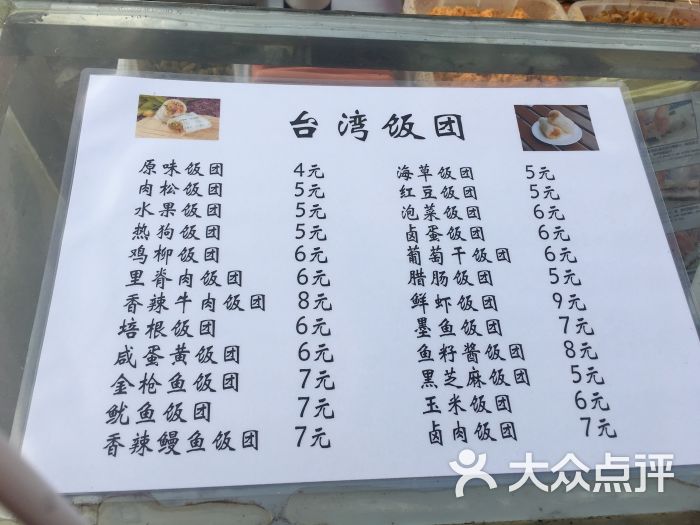 台湾饭团
原味饭团 4元
肉松饭团 5元
水果饭团 5元
热狗饭团 5元
鸡柳饭团 6元
里脊肉饭团 6元
香辣牛肉饭团 8元
培根饭团 6元
咸蛋黄饭团 6元
金枪鱼饭团 7元
鱿鱼饭团 7元
香辣鳗鱼饭团 7元
海草饭团 5元
红豆饭团 5元
泡菜饭团 6元
卤蛋饭团 6元
葡萄干饭团 6元
腊肠饭团 5元
鲜虾饭团 9元
墨鱼饭团 7元
鱼籽酱饭团 8元
黑芝麻饭团 5元
玉米饭团 6元
卤肉饭团 7元
大众点评